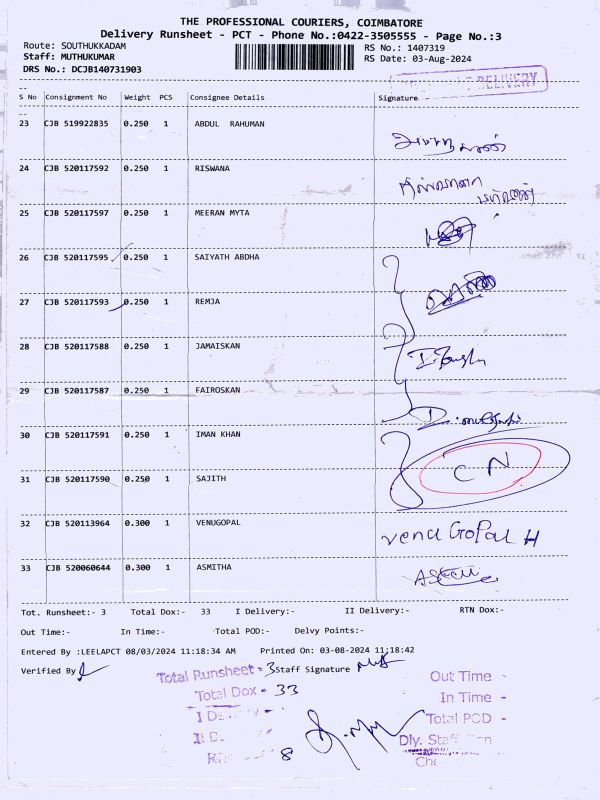 THE PROFESSIONAL COURIERS, COIMBATORE
Delivery Runsheet - PCT - Phone No.:0422-3505555 - Page No.:3
Route: SOUTHUKKADAM
RS No.: 1407319
Staff: MUTHUKUMAR
RS Date: 03-Aug-2024
DRS No.: DCJB140731903
DELIVERY
S No Consignment No Weight PCS Consignee Details Signature
23 CJB 519922835 0.250 1 ABDUL RAHUMAN
24 CJB 520117592 0.250 1 RISWANA
25 CJB 520117597 0.250 1 MEERAN MYTA
26 CJB 520117595 0.250 1 SAIYATH ABDHA
27 CJB 520117593 0.250 1 REMJA
28 CJB 520117588 0.250 1 JAMAISKAN
29 CJB 520117587 0.250 1 FAIROSKAN
30 CJB 520117591 0.250 1 IMAN KHAN
CN
31 CJB 520117590 0.250 1 SAJITH
32 CJB 520113964 0.300 1 VENUGOPAL venu GoPal H
33 CJB 520060644 0.300 1 ASMITHA
Tot. Runsheet:- 3 Total Dox:- 33 I Delivery:- II Delivery:- RTN Dox:-
Out Time:- In Time:- Total POD:- Delvy Points:-
Entered By :LEELAPCT 08/03/2024 11:18:34 AM Printed On: 03-08-2024 11:18:42
Verified By
Total Runsheet - 3 Staff Signature
Out Time -
Total Dox - 33
In Time -
Total POD -
Dly. Staff
8